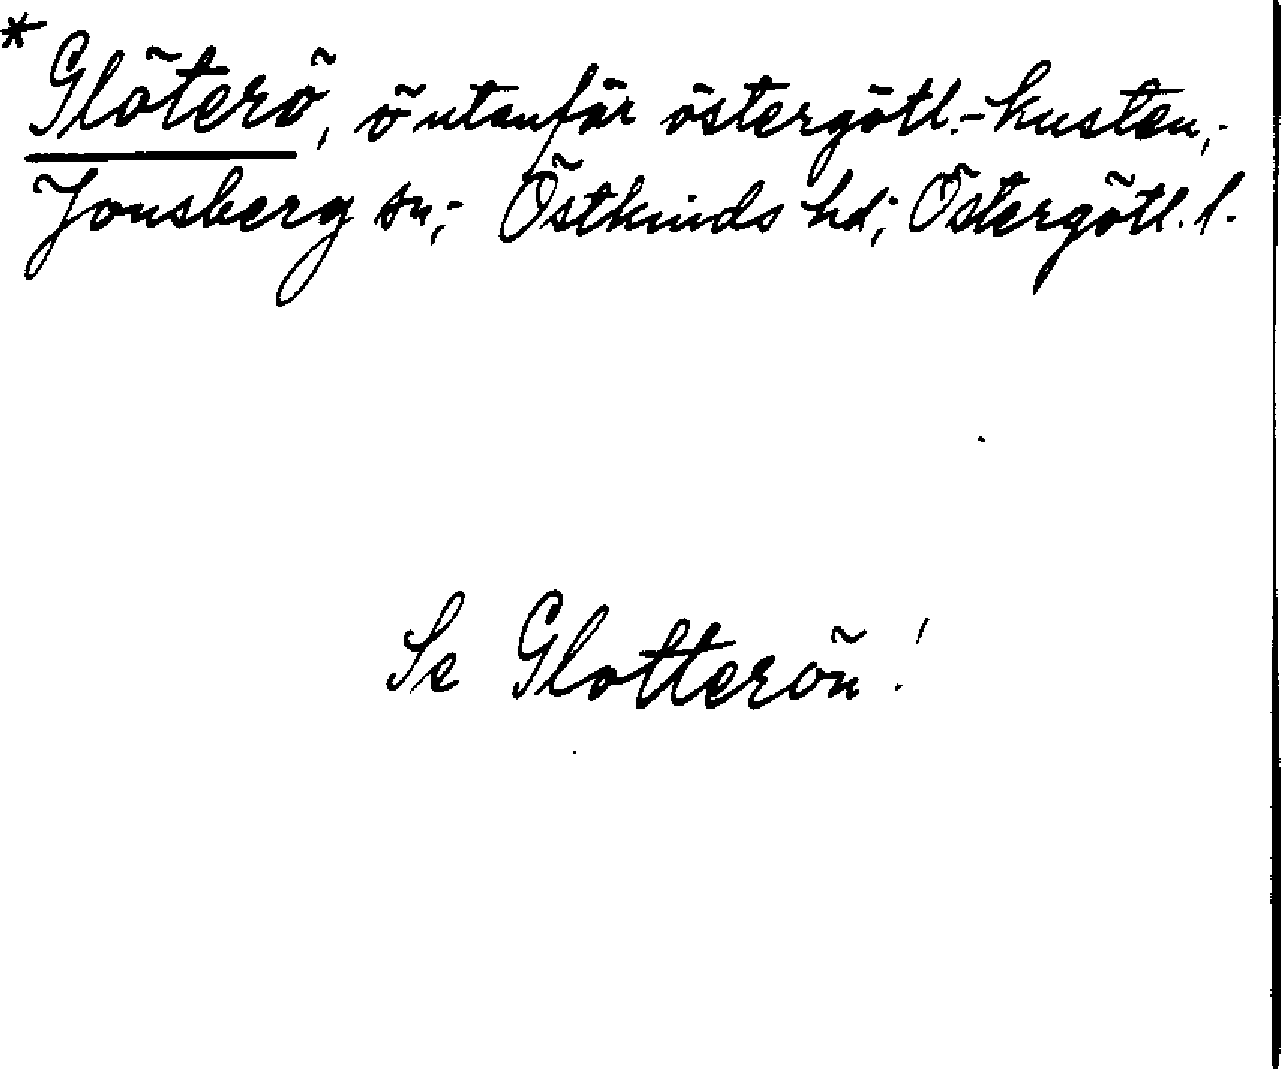 * Glöterö, ö utanför östergötl.-kusten,-
Jonsberg sn,- Östkinds hd,- Östergötl. l.
Se Glotterön!